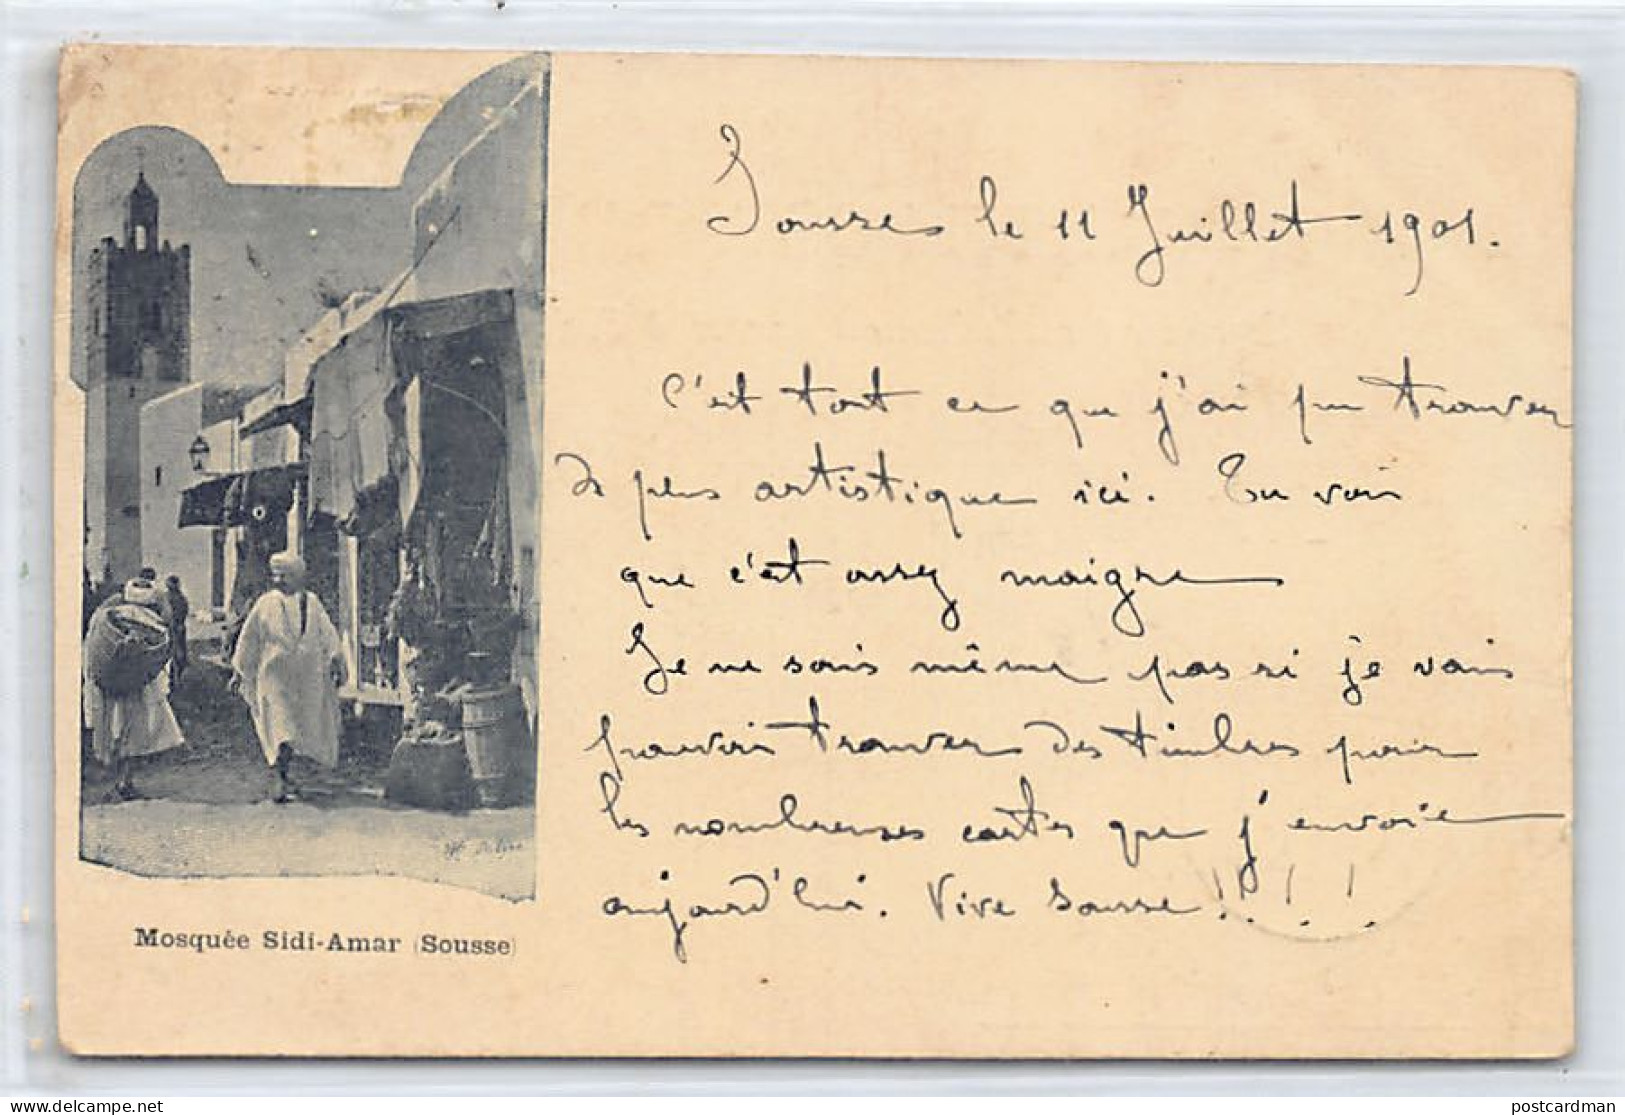 Sousse le 11 Juillet 1901.
C'est tout ce que j'ai pu trouver
de plus artistique ici. Tu vois
que c'est assez maigre
Je ne sais même pas si je vais
pouvoir trouver des timbres pour
les nombreuses cartes que j'envoie
aujourd'hui. Vive Sousse!!!!
Mosquée Sidi-Amar (Sousse)
delcampe.net
postcardman